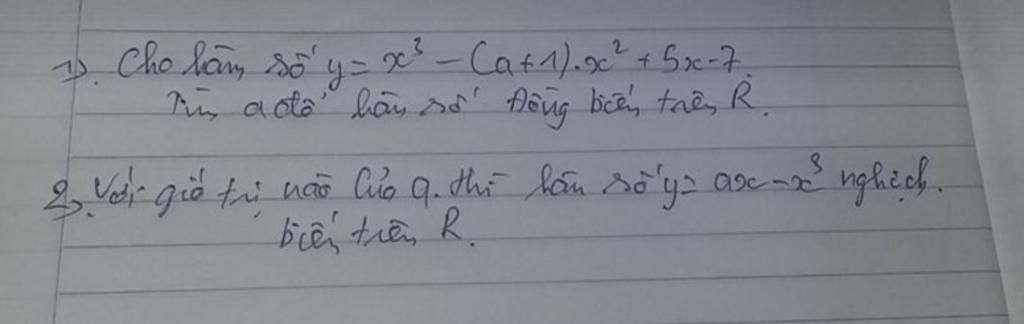 1). Cho hàm số y = x³ - (a+1).x² + 5x - 7.
Tìm a để hàm số đồng biến trên R.
2). Với giá trị nào của a. thì hàm số y = ax - x³ nghịch.
biến trên R.